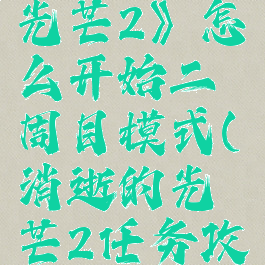 光芒2》怎
么开始二
周目模式(
消逝的光
芒2任务攻